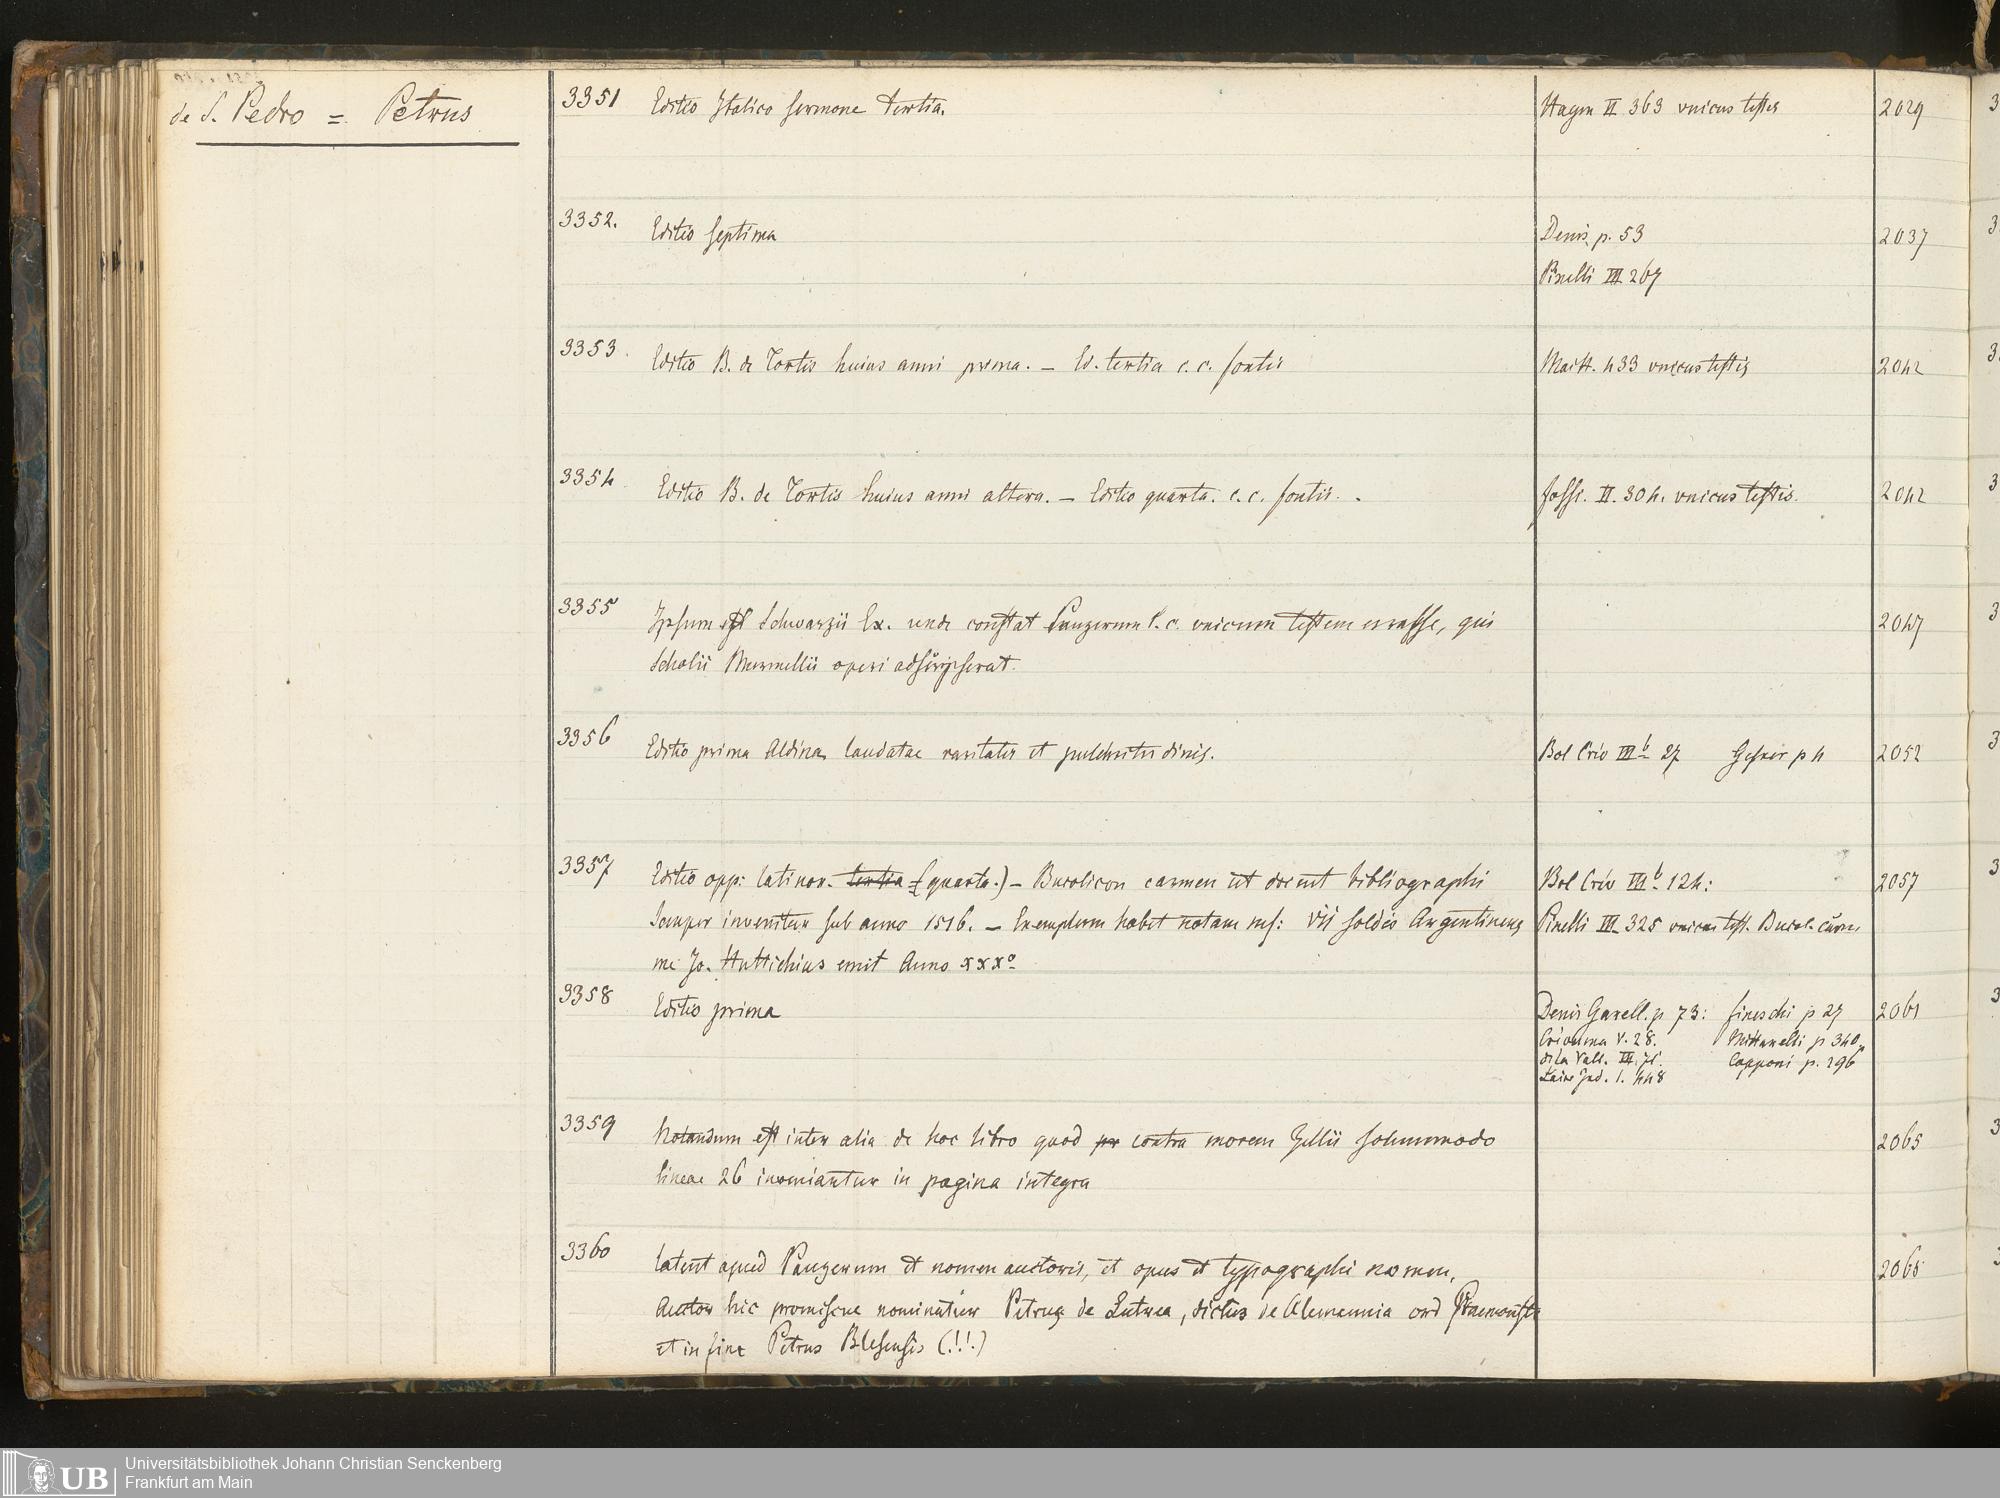 de S. Pedro = Petrus
3351 Editio Italico sermone tertia. Hagm II 363 vnicus testis 2029
3352. Editio septima Denis p. 53 2037
Pinelli III 267
3353. Editio B. de Tortis huius anni prima. – Ed. tertia c. c. fontii Maitt. 433 vnicus testis 2042
3354. Editio B. de Tortis huius anni altera. – Editio quarta. c. c. fontii. Foss. II. 304. vnicus testis. 2042
3355 Ipsum est Schwarzii Ex. unde constat Panzerum l. c. unicum testem esse, qui 2047
Scholii Murmellii operi adscripserat.
3356 Editio prima Aldina, laudatae raritatis et pulchritudinis. Bol Criv III b 27 Gesner p 4 2052
3357 Editio opp: latinor. tertia (quarta.) – Bucolicon carmen ut docent bibliographi Bol Criv III b 124: 2057
semper invenitur sub anno 1516. – Exemplum habet notam ms: vii soldis Argentinens Pinelli III 325 vnicus test. Bucol. carm.
me Jo. Huttichius emit Anno xxxo
3358 Editio prima Denis Garell. p 73: Fineschi p 27 2061
Crevenna V. 28. Mittarelli p 340
de la Vall. III. 71. Capponi p. 296
Laire Ind. I. 448
3359 Notandum est inter alia de hoc libro quod per contra morem Gellii solummodo 2065
lineae 26 inveniantur in pagina integra
3360 Latent apud Panzerum et nomen auctoris, et opus et typographi nomen, 2065
Auctor hic promiscue nominatur Petrus de Lutrea, dictus de Alemannia ord
et in fine Petrus Blesensis (!!.)
Universitätsbibliothek Johann Christian Senckenberg
Frankfurt am Main
UB